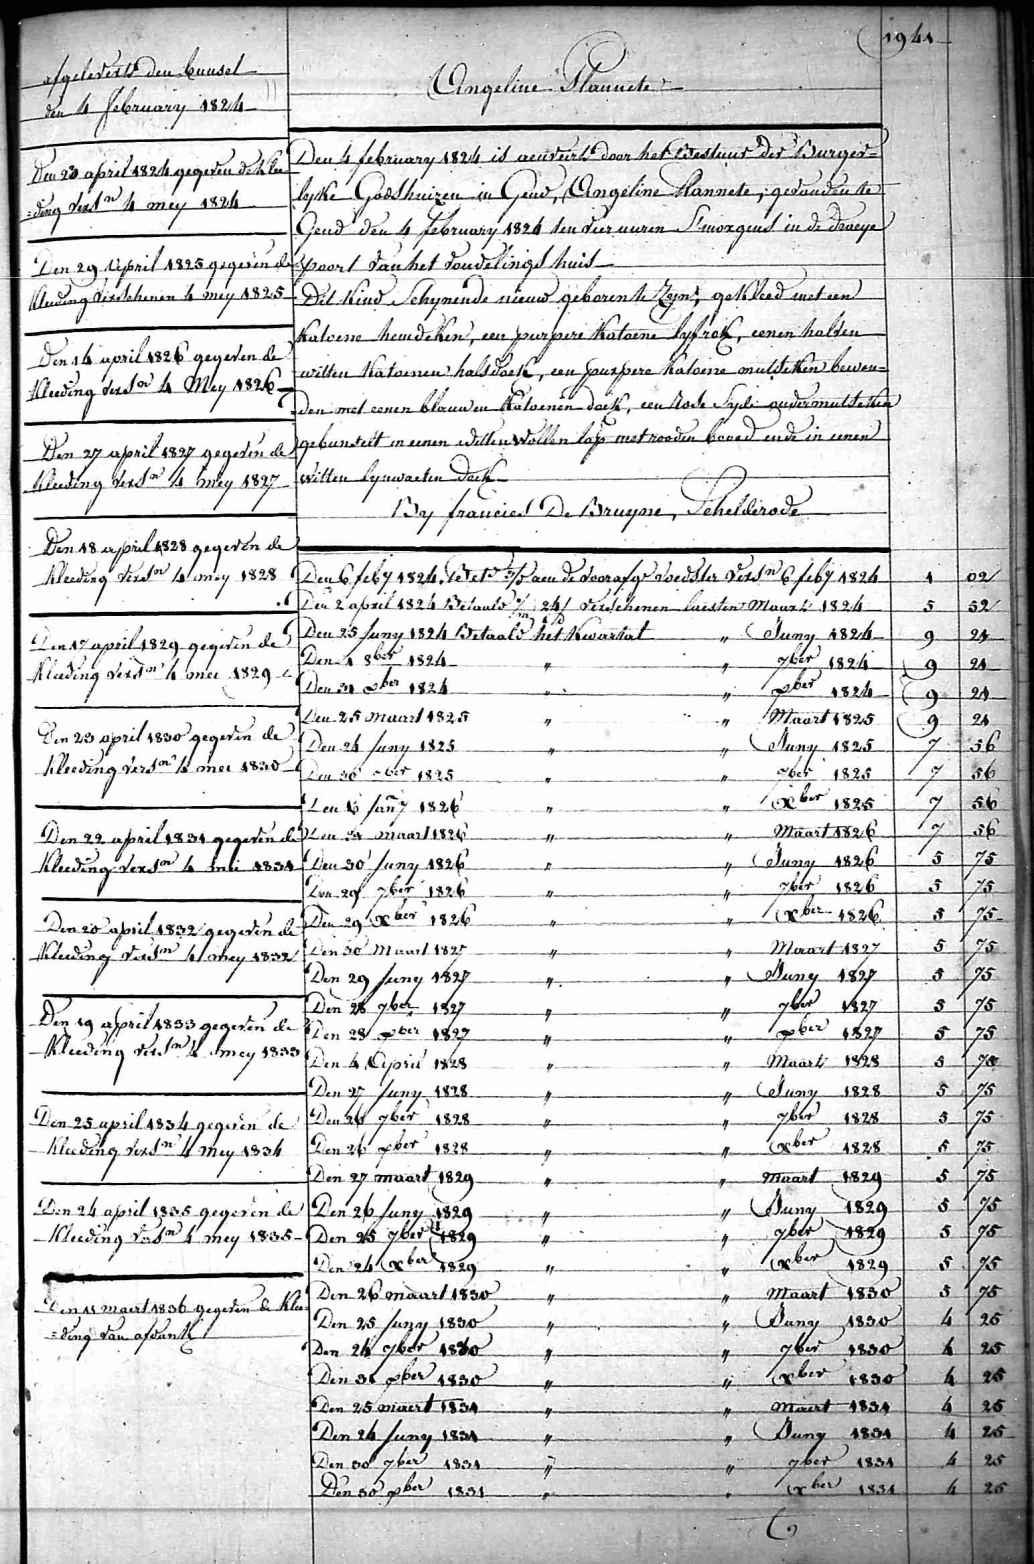 1941
afgeleverd den bunsel
den 4 february 1824
Den 23 april 1824 gegeven de klee
=ding versn 4 mey 1824
Den 29 April 1825 gegeven de
kleeding verschenen 4 mey 1825
Den 14 april 1826 gegeven de
kleeding versn 4 Mey 1826
Den 27 april 1827 gegeven de
kleeding versn 4 mey 1827
Den 18 april 1828 gegeven de
kleeding versn 4 mey 1828
Den 17 april 1829 gegeven de
kleeding versn 4 mei 1829
Den 23 april 1830 gegeven de
kleeding versn 4 mei 1830
Den 22 april 1831 gegeven de
kleeding versn 4 mei 1831
Den 20 april 1832 gegeven de
kleeding versn 4 mey 1832
Den 19 april 1833 gegeven de
kleeding versn 4 mey 1833
Den 25 april 1834 gegeven de
kleeding versn 4 mey 1834
Den 24 april 1835 gegeven de
kleeding versn 4 mey 1835
Den 11 maert 1836 gegeven de klee
=ding van afdank
Angeline Plannete
Den 4 february 1824 is aenveird door het Bestuur der Burger=
lyke Godshuizen in Gend, Angeline Plannete, gevonden te
Gend den 4 february 1824 ten vier uuren S'morgens in de draeye
poort van het vondelings huis
Dit Kind Schynende nieuw geboren te Zyn, gekleed met een
katoene hemdeken, een purpere katoene lyfrok, eenen halven
witten katoenen halsdoek, een purpere katoene mutseken bewon=
den met eenen blauwen katoenen doek, een rode Syde ondermutseken
gebunselt in eenen witten wollen lap met rooden boord ende in eenen
witten lynwaeten doek
By francies De Bruyne, Schelderode
Den 6 feby 1824 aen de voorafge voedster versn 6 feby 1824 1 02
Den 2 april 1824 Betaald 24/ verschenen laesten Maart 1824 5 52
Den 25 Juny 1824 Betaald het kwartal " Juny 1824 9 21
Den 1 8ber 1824 " " 7ber 1824 9 21
Den 31 xber 1824 " " xber 1824 9 21
Den 25 maart 1825 " " Maart 1825 9 21
Den 24 Juny 1825 " " Juny 1825 7 56
Den 30 7ber 1825 " " 7ber 1825 7 56
Den 13 Jany 1826 " " Xber 1825 7 56
Den 31 maart 1826 " " Maart 1826 7 56
Den 30 Juny 1826 " " Juny 1826 5 75
Den 29 7ber 1826 " " 7ber 1826 5 75
Den 29 Xber 1826 " " Xber 1826 5 75
Den 30 Maart 1827 " " Maart 1827 5 75
Den 29 Juny 1827 " " Juny 1827 5 75
Den 28 7ber 1827 " " 7ber 1827 5 75
Den 28 xber 1827 " " xber 1827 5 75
Den 4 April 1828 " " Maart 1828 5 75
Den 27 Juny 1828 " " Juny 1828 5 75
Den 26 7ber 1828 " " 7ber 1828 5 75
Den 26 xber 1828 " " Xber 1828 5 75
Den 27 maart 1829 " " maart 1829 5 75
Den 26 Juny 1829 " " Juny 1829 5 75
Den 25 7ber 1829 " " 7ber 1829 5 75
Den 24 Xber 1829 " " Xber 1829 5 75
Den 26 maart 1830 " " Maart 1830 5 75
Den 25 Juny 1830 " " Juny 1830 4 25
Den 24 7ber 1830 " " 7ber 1830 4 25
Den 31 xber 1830 " " Xber 1830 4 25
Den 25 maert 1831 " " Maert 1831 4 25
Den 24 Juny 1831 " " Juny 1831 4 25
Den 30 7ber 1831 " " 7ber 1831 4 25
Den 30 xber 1831 " " Xber 1831 4 25